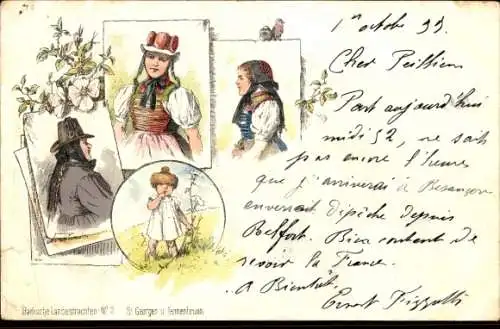 1er octobre 99.
Cher Peillien
Part aujourd'hui
midi 52, ne sait
pas encore l'heure
que j'arriverai à Besançon
enverrait dipêche depuis
Belfort. Bien content de
revoir la France.
A Bientôt
Ernest
Badische Landestrachten No 3 St Georgen u. Tennenbronn